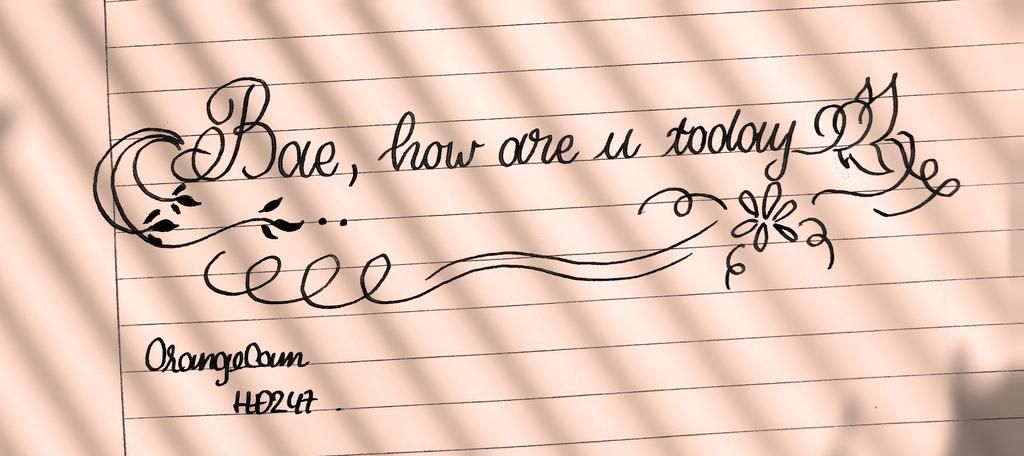 Bae, how are u today
OrangeCam
HD247.